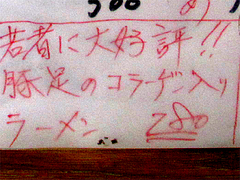 500
若者に大好評!!
豚足のコラーゲン入り
ラーメン 280